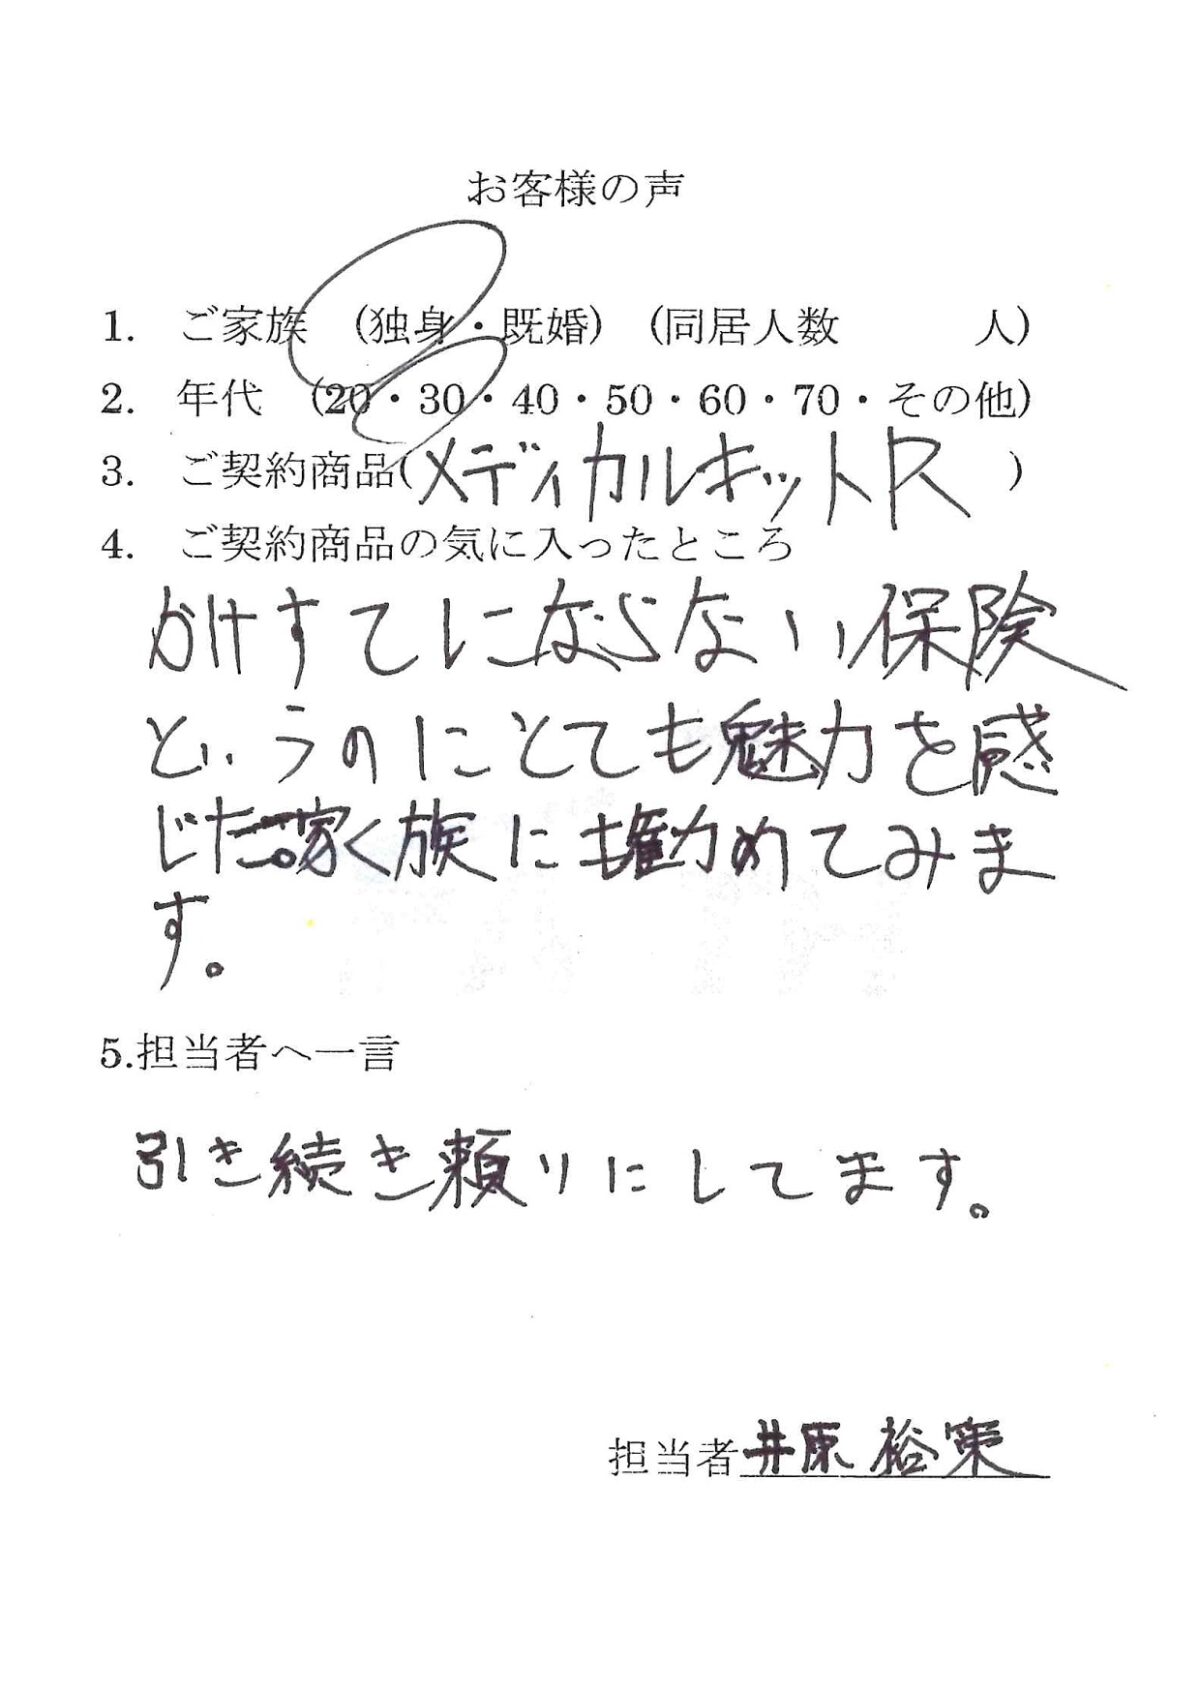 お客様の声
1. ご家族 (独身・既婚) (同居人数 人)
2. 年代 (20・30・40・50・60・70・その他)
3. ご契約商品(メディカルキットR )
4. ご契約商品の気に入ったところ
かけすてにならない保険
というのにとても魅力を感
じた。家族にも勧めてみま
す。
5.担当者へ一言
引き続き頼りにしてます。
担当者 井原 裕策